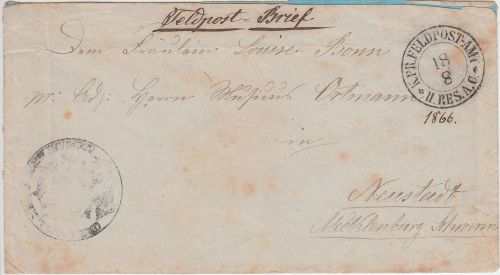 Feldpost-Brief
Dem Fräulein Louise Bonn
K. PR. FELDPOST-AMT
18
8
* II RES. A. C. *
Adj: Herrn Ortmann
1866.
in
Neustadt
Mecklenburg Schwerin